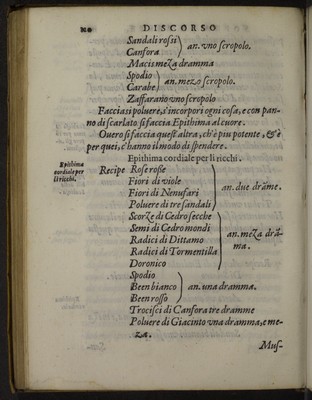 DISCORSO
Sandali rossi
Canfora an. vno scropolo.
Macis meza dramma
Spodio
Carabe an. mezo scropolo.
Zaffarano vno scropolo
Facciasi poluere, s'incorpori ogni cosa, e con pan-
no di scarlato si faccia Epithima al cuore.
Ouero si faccia quest'altra, ch'è piu potente, & è
per quei, c'hanno il modo di spendere.
Epithima cordiale per li ricchi.
Epithima
cordiale per
li ricchi.
Recipe Rose rosse
Fiori di viole
Fiori di Nenufari
an. due drãme.
Poluere di tre sandali
Scorze di Cedro secche
Semi di Cedro mondi
Radici di Dittamo
an. meza drã-
ma.
Radici di Tormentilla
Doronico
Spodio
Been bianco an. una dramma.
Been rosso
Trocisci di Canfora tre dramme
Poluere di Giacinto vna dramma, e me-
za.
Mus-